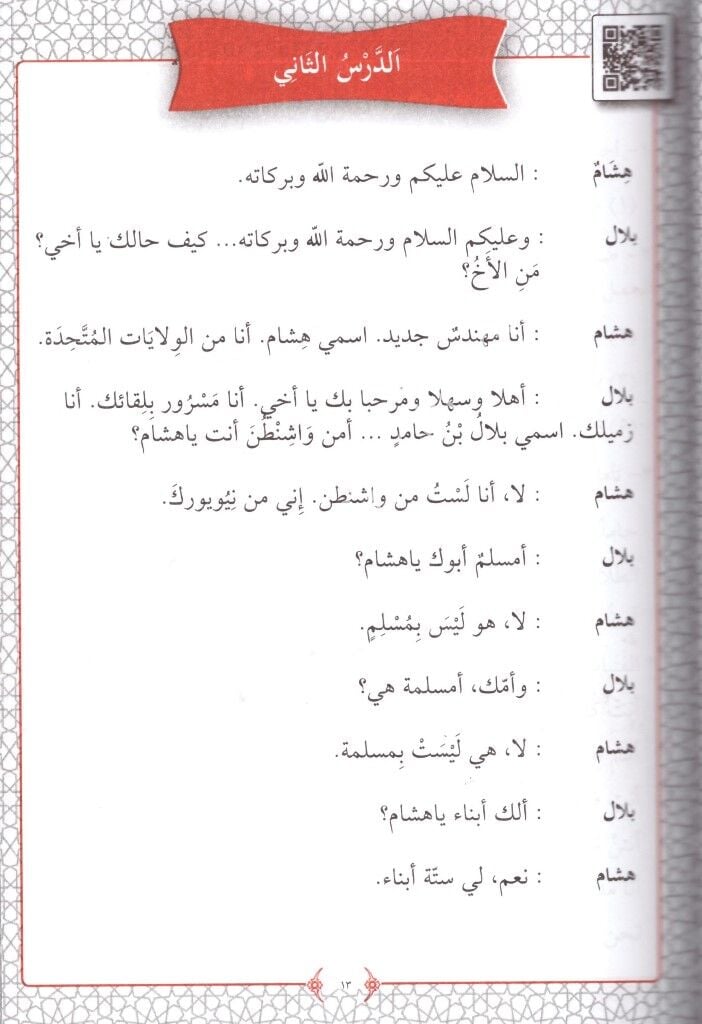 اَلدَّرْسُ الثَانِي
هِشَامٌ : السلام عليكم ورحمة الله وبركاته.
بلال : وعليكم السلام ورحمة الله وبركاته... كيف حالك يا أخي؟
مَنِ الأَخُ؟
هشام : أنا مهندسٌ جديد. اسمي هِشام. أنا من الوِلايَات المُتَّحِدَة.
بلال : أهلا وسهلا ومرحبا بك يا أخي. أنا مَسْرُور بِلِقائك. أنا
زميلك. اسمي بلالُ بْنُ حامدٍ ... أمن وَاشِنْطُنَ أنت ياهشام؟
هشام : لا، أنا لَسْتُ من واشنطن. إِني من نِيُويوركَ.
بلال : أمسلمٌ أبوك ياهشام؟
هشام : لا، هو لَيْسَ بِمُسْلِمٍ.
بلال : وأمّك، أمسلمة هي؟
هشام : لا، هي لَيْسَتْ بِمسلمة.
بلال : ألك أبناء ياهشام؟
هشام : نعم، لي ستّة أبناء.
١٣